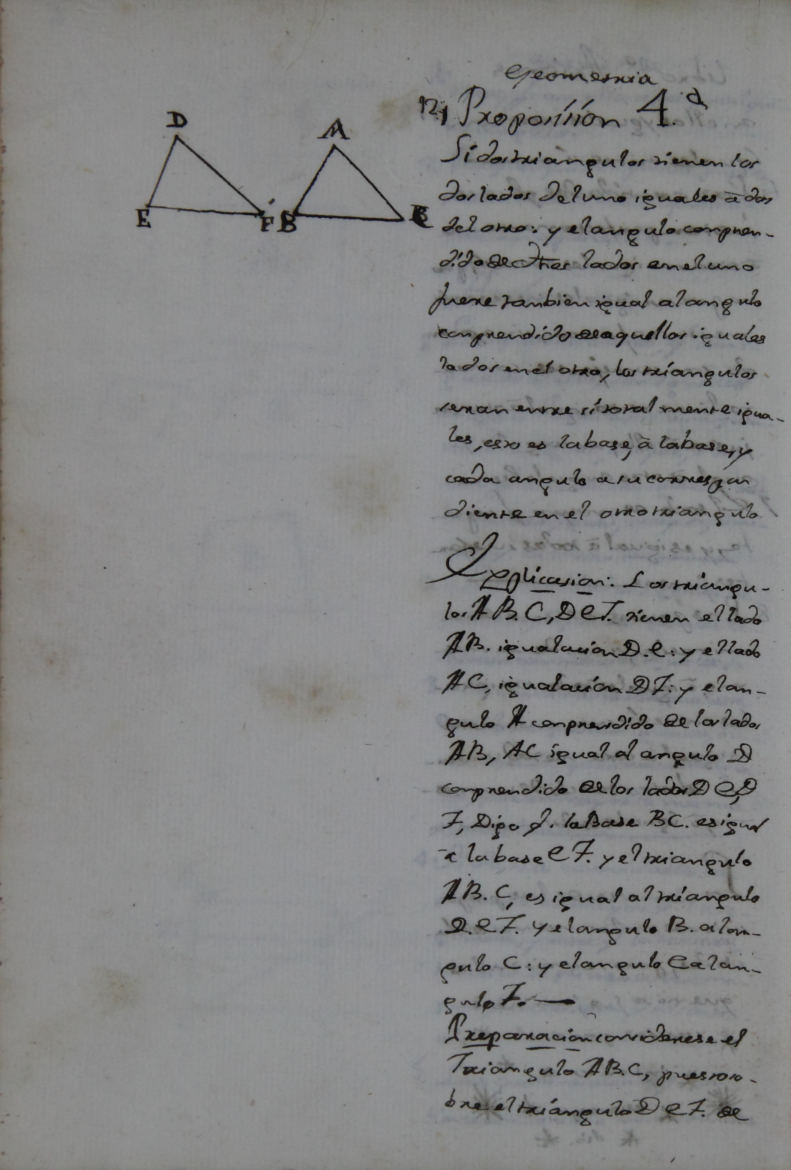 Geometria
Proposision 4.ª
D
A
E
F
B
C
Si dos triangulos tienen los
dos lados del uno iguales à dos
del otro: y el angulo conpren-
dido de dhos lados en el uno
fuere tanbien igual al angulo
conprendido de aquellos iguales
lados en el otro, los triangulos
seran entre si totalmente igua-
les, esto es la base, à la base, y
cada angulo a su correspon
diente en el otro triangulo
Explicasion: Los triangu-
los A B. C, D E F. tienen el lado
AB. igual acion D. E: y el lado
AC, igual acion D F: y el an-
gulo A conprendido de los lados
AB, AC igual al angulo D
conprendido de los lados D E, D
F, Digo q. la Base BC. es igual
à la base E F. y el triangulo
A B. C, es igual al triangulo
D. E F. y el angulo B. al an-
gulo E: y el angulo C al an-
gulo F.
Preparacion considerese el
Triangulo A B. C, puesto so-
bre el triangulo D E F. de